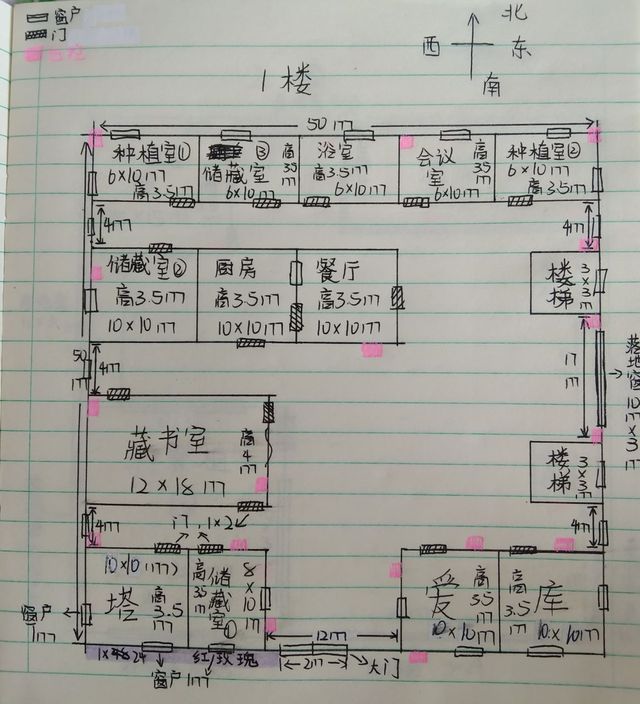 窗户
门
北
西 东
南
1楼
50m
种植室①
6×10m
高3.5m
③
储藏室
6×10m
高3.5m
浴室
高3.5m
6×10m
会议室
6×10m
高3.5m
种植室②
6×10m
高3.5m
4m
4m
储藏室②
高3.5m
10×10m
厨房
高3.5m
10×10m
餐厅
高3.5m
10×10m
楼梯
3×3m
50m
4m
17m
落地窗10m×3m
藏书室
12×18m
高4m
楼梯
3×3m
4m
门,1×2
4m
10×10m
塔
高3.5m
储藏室①
高3.5m
8×10m
爱
高3.5m
10×10m
库
高3.5m
10×10m
窗户
1m
12m
2m
大门
红玫瑰
窗户1m